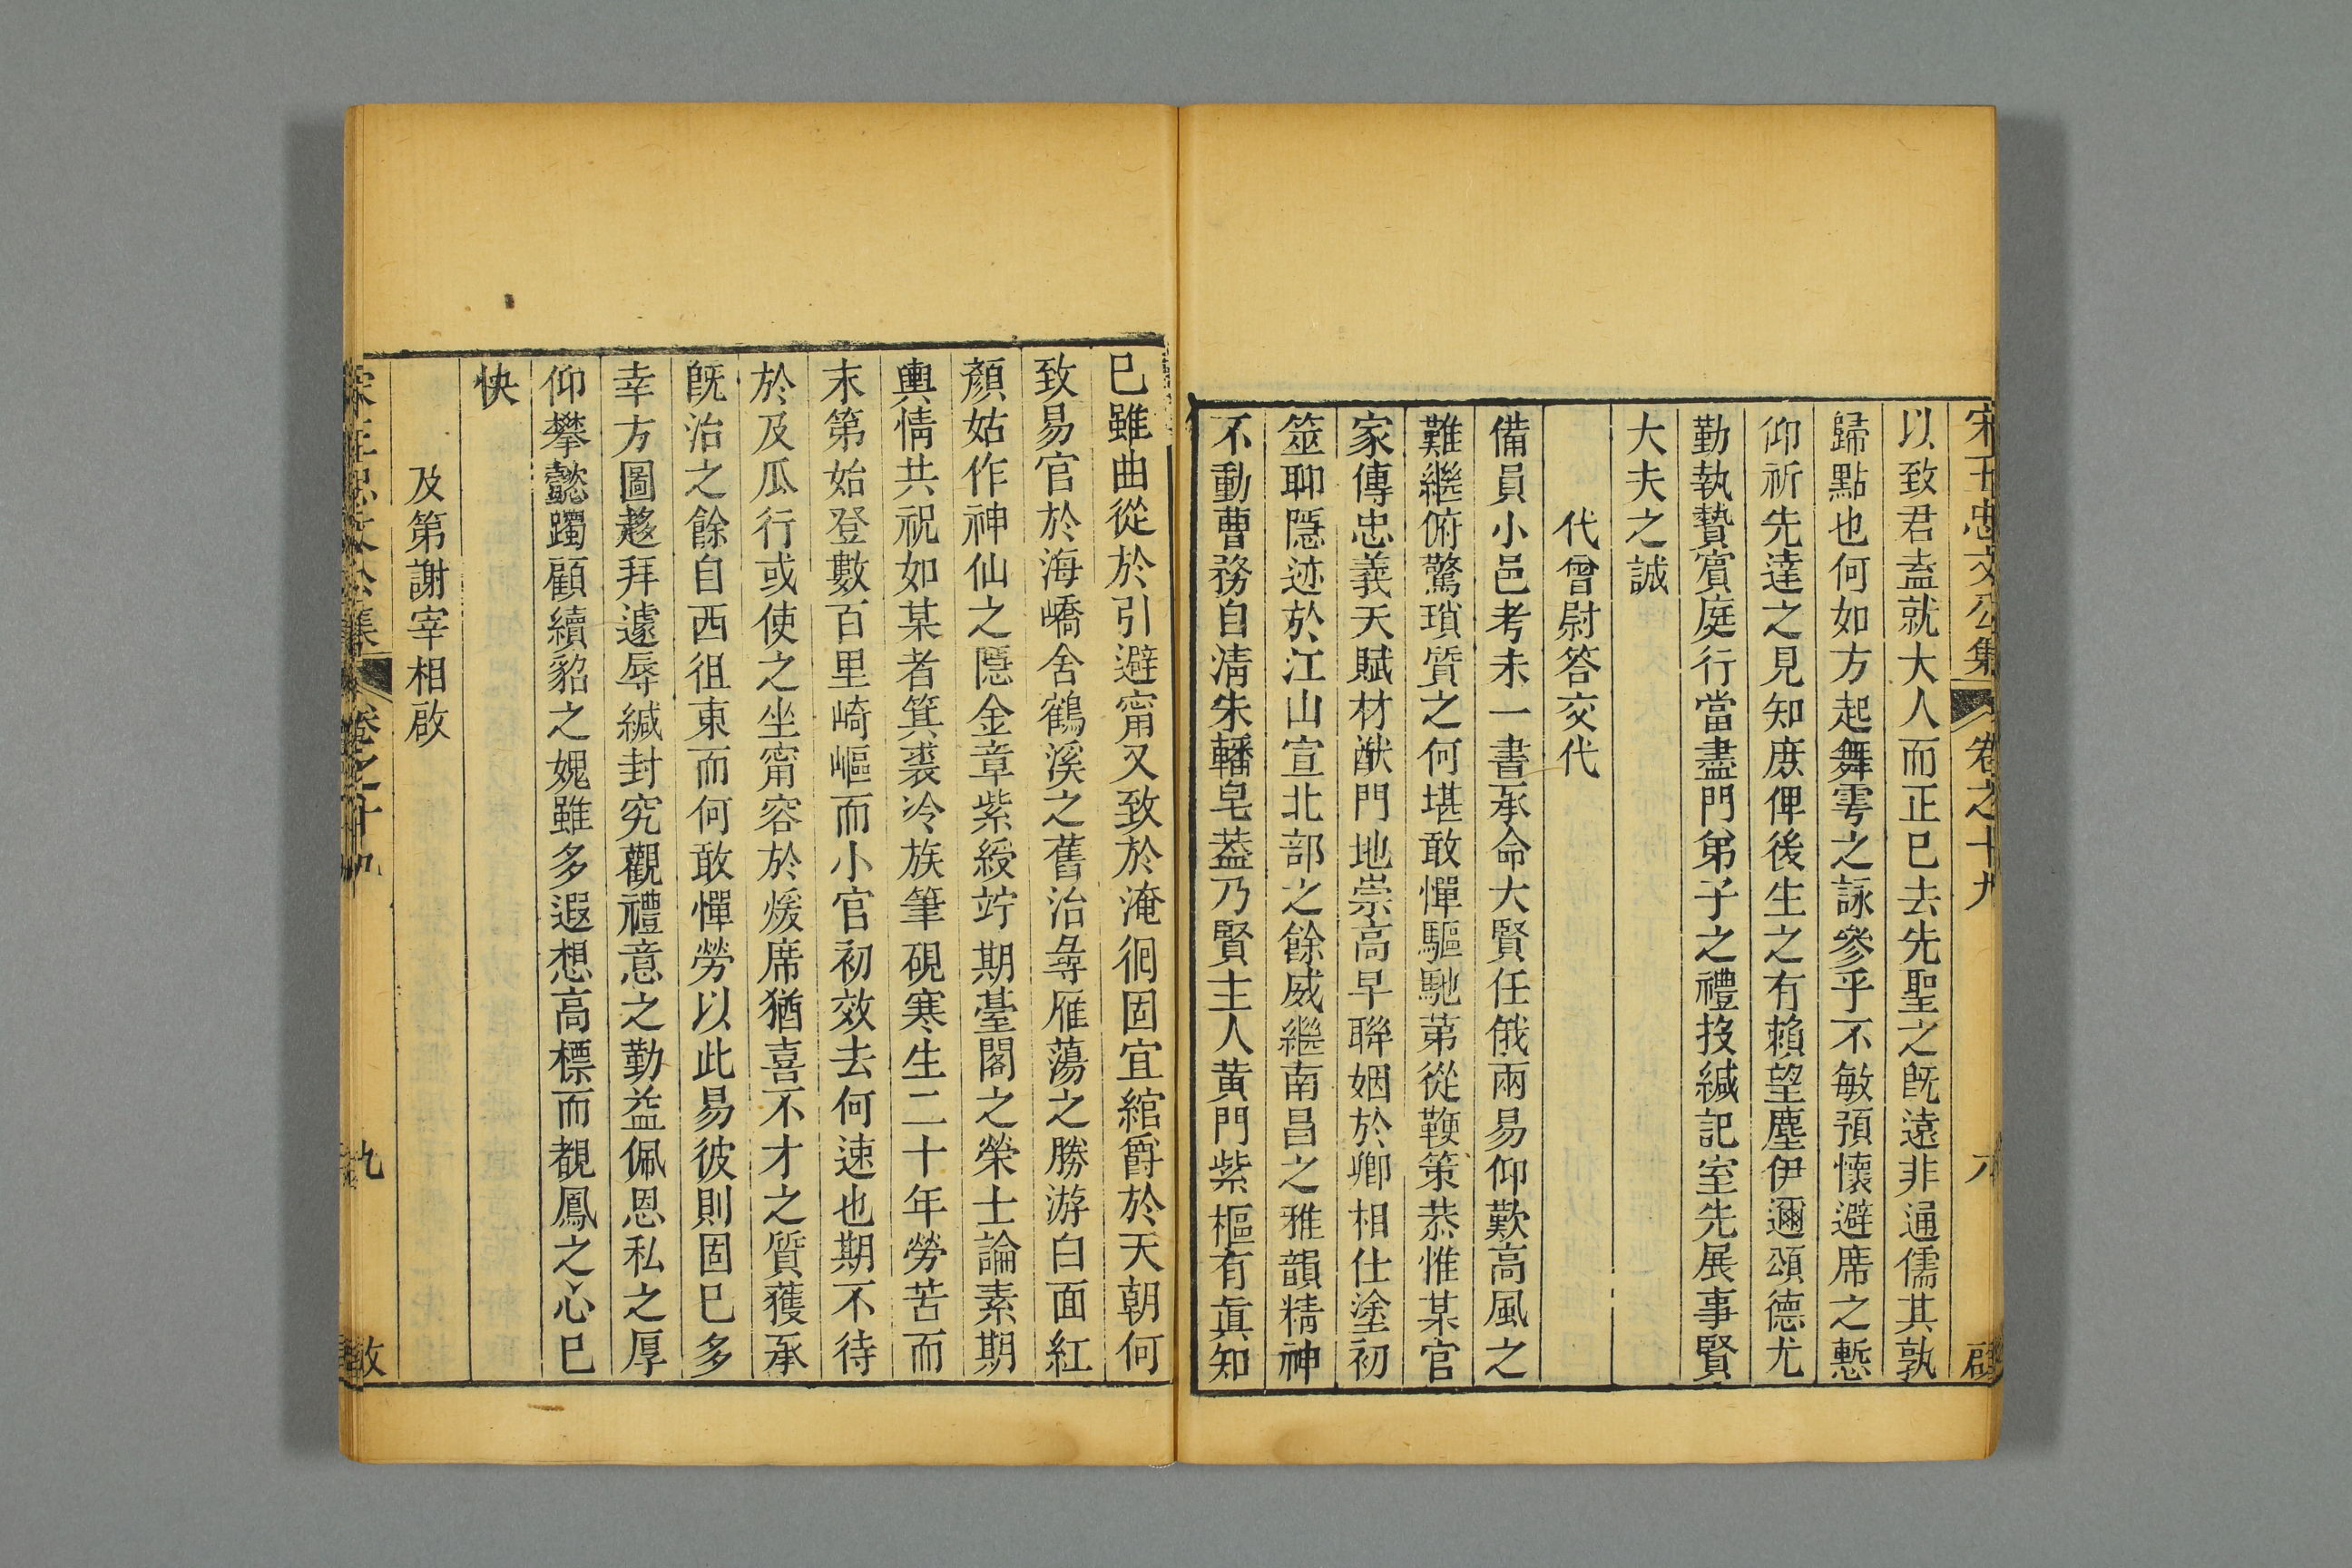 宋王忠文公集 卷之十九 八 啟
以致君盍就大人而正已去先聖之既遠非通儒其孰
歸點也何如方起舞雩之詠參乎不敏預懷避席之慙
仰祈先達之見知庶俾後生之有賴望塵伊邇頌德尤
勤執贄賓庭行當盡門弟子之禮投緘記室先展事賢
大夫之誠
代曾尉答交代
備員小邑考未一書承命大賢任俄兩易仰歎高風之
難繼俯驚瑣質之何堪敢憚驅馳第從鞭策恭惟某官
家傳忠義天賦材猷門地崇高早聯姻於卿相仕塗初
筮聊隱迹於江山宣北部之餘威繼南昌之雅韻精神
不動曹務自清朱轓皂蓋乃賢主人黃門紫樞有眞知
已雖曲從於引避甯又致於淹徊固宜綰爵於天朝何
致易官於海嶠舍鶴溪之舊治尋雁蕩之勝游白面紅
顏姑作神仙之隱金章紫綬竚期臺閣之榮士論素期
輿情共祝如某者箕裘冷族筆硯寒生二十年勞苦而
末第始登數百里崎嶇而小官初效去何速也期不待
於及瓜行或使之坐甯容於煖席猶喜不才之質獲承
既治之餘自西徂東而何敢憚勞以此易彼則固已多
幸方圖趍拜遽辱緘封究觀禮意之勤益佩恩私之厚
仰攀懿躅顧續貂之媿雖多遐想高標而覩鳳之心已
快
及第謝宰相啟
宋王忠文公集 卷之十九 九